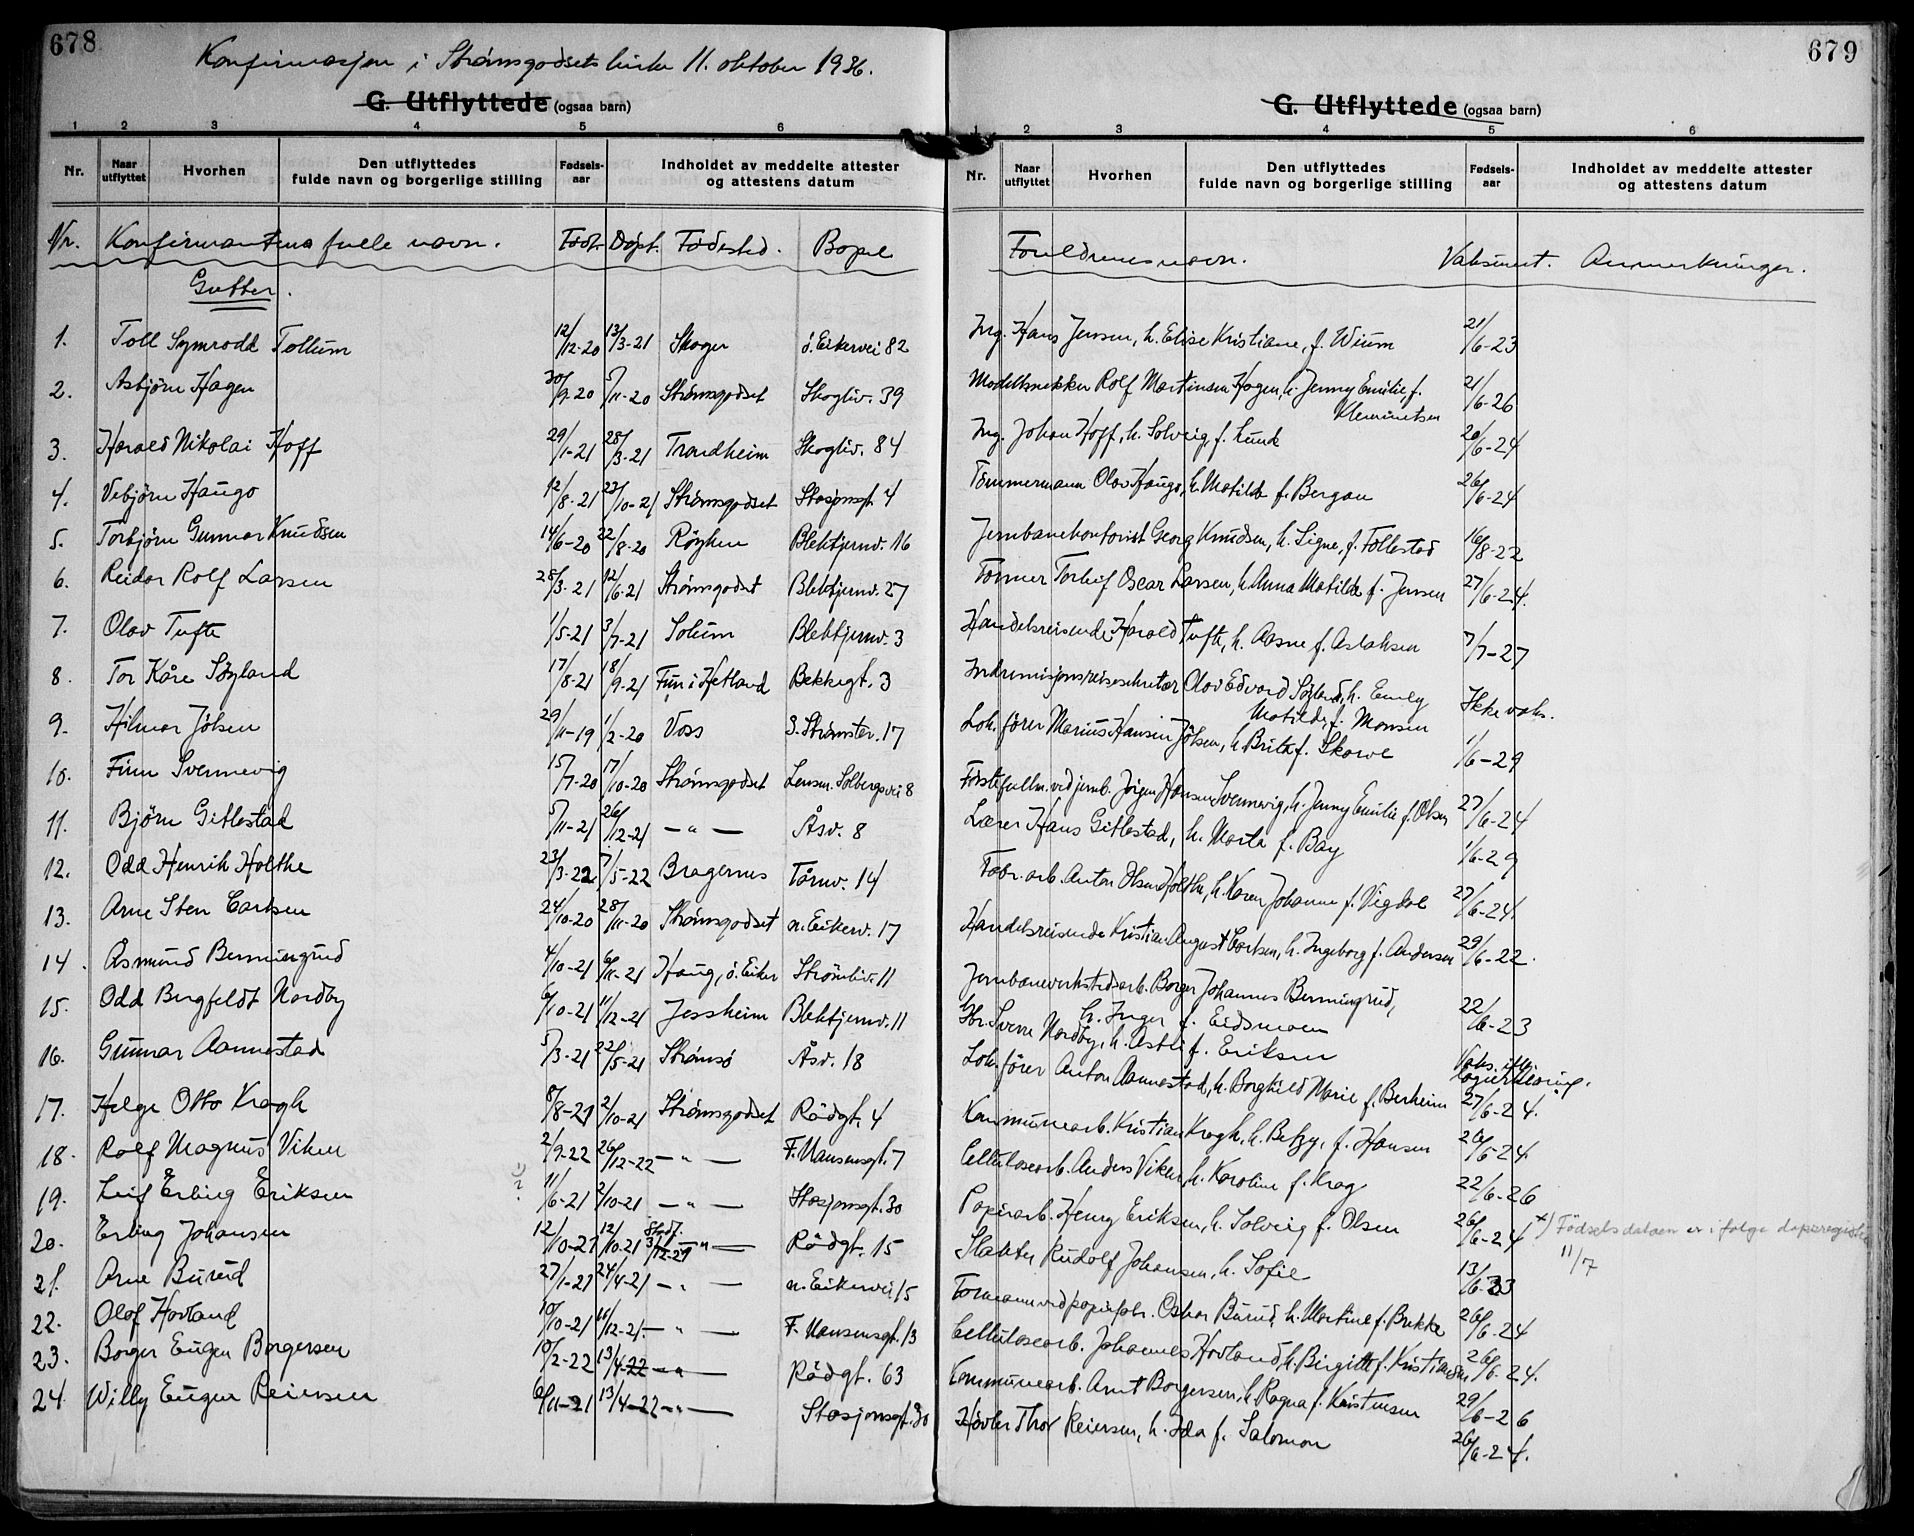 678
Konfirmasjon i Strømsgodsets kirke 11. oktober 1936.
G. Utflyttede (ogsaa barn)
1 2 3 4 5 6
Nr. Naar utflyttet Hvorhen Den utflyttedes fulde navn og borgerlige stilling Fødsels-aar Indholdet av meddelte attester og attestens datum
Nr. Konfirmantens fulle navn. Født Døpt. Fødested. Bopel
Gutter.
1. Toll Symrodd Tollum 12/12-20 13/3-21 Skoger ö. Eikervei 82
2. Asbjörn Hagen 30/9-20 5/11-20 Strömsgodset Skogliv. 39
3. Harald Nikolai Hoff 29/1-21 28/3-21 Trondheim Skogliv. 84
4. Vebjörn Haugo 12/8-21 23/10-21 Strömsgodset Stasjonsgt. 4
5. Torbjörn Gunnar Knudsen 14/6-20 22/8-20 Röyken Blektjernv. 16
6. Reidar Rolf Larsen 28/3-21 12/6-21 Strömsgodset Blektjernv. 27
7. Olav Tufte 1/5-21 3/7-21 Solum Blektjernv. 3
8. Tor Kåre Söyland 17/8-21 18/9-21 i Hetland Bekkegt. 3
9. Hilmar Jölsen 29/11-19 1/2-20 Voss S. Strömster. 17
10. Finn Svennevig 15/7-20 17/10-20 Strömsgodset Lensm. Solbergsvei 8
11. Björn Gitlestad 5/11-21 26/12-21 — " — Åsv. 8
12. Odd Henrik Holthe 23/3-22 7/5-22 Bragernes Tårnv. 14
13. Arne Sten Carlsen 24/10-20 28/11-20 Strömsgodset n. Eikerv. 17
14. Asmund Bermingrud 4/10-21 6/11-21 Haug, ö. Eiker Strömliv. 11
15. Odd Bergfeldt Nordby 6/10-21 11/12-21 Jessheim Blektjernv. 11
16. Gunnar Aannestad 5/3-21 22/5-21 Strömsö Åsv. 18
17. Helge Otto Kragh 8/8-21 2/10-21 Strömsgodset Rödgt. 4
18. Rolf Magnus Viken 2/9-22 26/12-22 — " — F. Nansensgt. 7
19. Leif Erling Eriksen 11/6-21 2/10-21 — " — Stasjonsgt. 30
20. Erling Johansen 12/10-21 12/10-21 Stadf. 3/12-21 " — Rödgt. 15
21. Arne Burud 27/1-21 24/4-21 — " — n. Eikervei 15
22. Olaf Hovland 10/10-21 11/12-21. — " — F. Nansensgt. 13
23. Borger Eugen Borgersen 10/2-22 13/4-22 — " — Rödgt. 63
24. Willy Eugen Reiersen 6/11-21 13/4-22 — " — Stasjonsgt. 30
679
G. Utflyttede (ogsaa barn)
1 2 3 4 5 6
Nr. Naar utflyttet Hvorhen Den utflyttedes fulde navn og borgerlige stilling Fødsels-aar Indholdet av meddelte attester og attestens datum
Foreldrenes navn. Vaksinert. Anmerkninger.
Ing. Hans Jensen, h. Elise Kristiane, f. Wium 21/6-23
Modellsnekker Rolf Martinsen Hagen, h. Jenny Emilie, f.
Klemmetsen 21/6-26
Ing. Johan Hoff, h. Solveig, f. Lund 20/6-24
Tömmermann Olav Haugo, h. Matilde f. Bergan 26/6-24
Jernbanekontorist Georg Knudsen, h. Signe, f. Follestad 16/8-22
Former Torleif Oscar Larsen, h. Anna Matilde f. Jensen 27/6-24.
Handelsreisende Harald Tufte, h. Aasne f. Aslaksen 7/7-27
Indremisjonsreisesekretær Olav Edvard Söyland, h. Emely
Matilde, f. Monsen Ikke vaks.
Lok. förer Marius Hansen Jölsen, h. Brita f. Skorve 1/6-29
Förstefullm. ved jernb. Jörgen Hansen Svennevig, h. Jenny Emilie f. Olsen 27/6-24
Lærer Hans Gitlestad, h. Marta f. Bay 1/6-29
Fabr. arb. Anton Olsen Holthe, h. Karen Johanne f. Vigdal 27/6-24.
Handelsreisende Kristian August Carlsen, h. Ingeborg f. Andersen 29/6-22.
Jernbaneverkstedsarb. Borger Johannes Bermingrud,
h. Inger f. Eidsmoen 22/6-23
Sverre Nordby, h. Astri f. Eriksen Vaks. ifl. lægeerklæring.
Lok. förer Anton Aannestad, h. Borghild Marie f. Berheim 27/6-24.
Kommunearb. Kristian Kragh, h. Betzy, f. Hansen 26/5-24.
Cellulosearb. Anders Viken, h. Karoline f. Krag 22/6-26
Papirarb. Henry Eriksen, h. Solveig f. Olsen 26/6-24 x) Födselsdatoen er i fölge dåpsregistret
11/7
Slakter Rudolf Johansen, h. Sofie 13/6-33
Formann ved papirfabr. Oskar Burud, h. Martine f. Brekke 26/6-24
Cellulosearb. Johannes Hovland, h. Birgitte f. Kristiansen 26/6-24.
Kommunearb. Arnt Borgersen, h. Ragna f. Kristensen 29/6-26
Hövler Thor Reiersen, h. Ida f. Salomon 26/6-24.